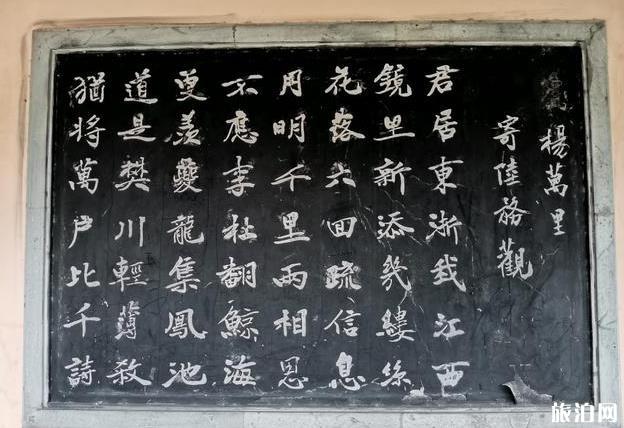 楊萬里
寄陸務觀
君居東浙我江西
鏡里新添幾縷絲
花落六回疏信息
月明千里兩相思
不應李杜翻鯨海
更羨夔龍集鳳池
道是樊川輕薄殺
猶將萬戶比千詩
旅泊网